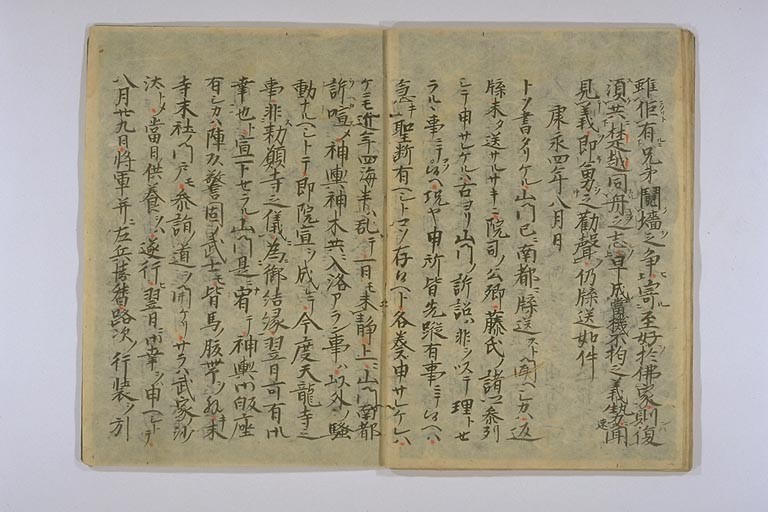 雖似有兄弟鬩墻之争ヒ寄至好於佛家則復
須共楚越同舟之志早成當機不拘之義勢聞
見義即勇之勸聲仍牒送如件
康永四年八月日
トソ書タリケル山門已ニ南都ニ牒送スト聞ヘシカハ返
牒未タ送サルサキニ院司ノ公卿藤氏ノ諸参列
シテ申サレケルハ古ヨリ山門ノ訴訟ハ非ヲ以テ理トセ
ラルヽ事ニテ候況ヤ申所皆先蹤有事ニテ候ヘハ
急キ聖断有ヘシトコソ存候ヘト各奏シ申サレケレハ
ケニモ近年四海半ハ乱テ一日モ未静上ニ山門南都
訴喧メ神輿神木共ニ入洛アラン事ハ以外ノ騒
動ナルヘシトテ即院宣ヲ成シテ今度天龍寺之
事非勅願寺之儀為御結縁翌日可有御
幸也ト宣下セラル山門是ニ宥テ神輿御皈座
有シカハ陣頭警固ノ武士モ皆馬腹帯ヲ弛キ末
寺末社ノ門戸モ参詣ノ道ヲ開ケリサラハ武家ノ沙
汰トメ當日供養ヲハ遂行ヒ翌日御幸ヲ申ヘシトテ
八月廿九日将軍并ニ左兵衛督路次ノ行装ヲ引